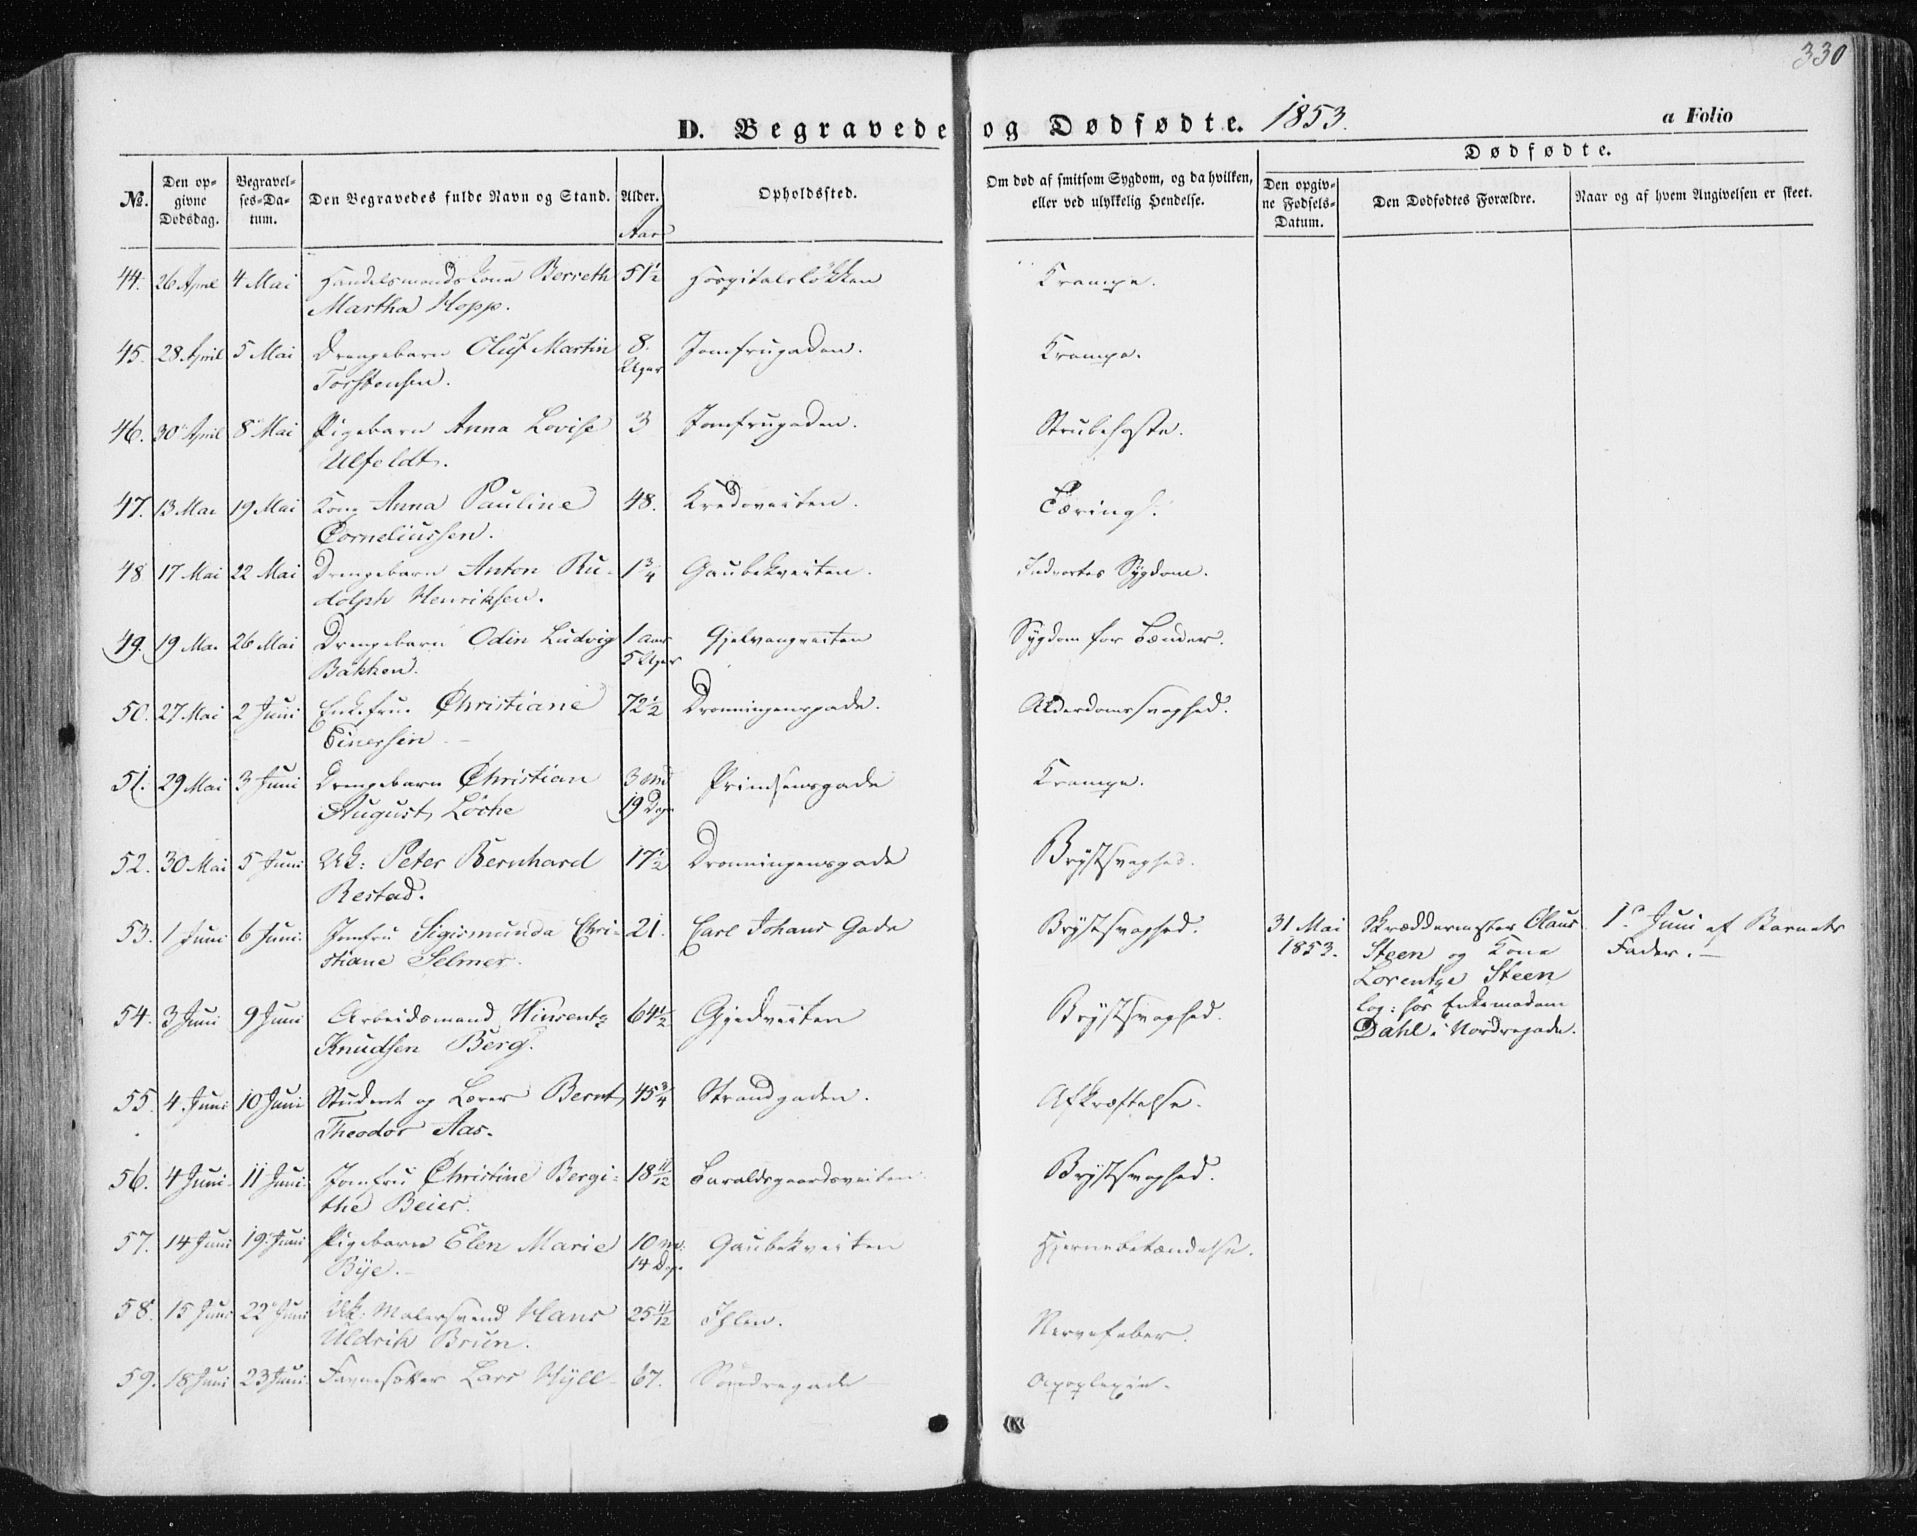 330
D. Begravede og Dødfødte. 1853. a Folio
Dødfødte.
No. Den opgivne Dødsdag. Begravelses-Datum. Den Begravedes fulde Navn og Stand. Alder. Opholdssted. Om død af smitsom Sygdom, og da hvilken, eller ved ulykkelig Hendelse. Den opgivne Fødsels-Datum. Den Dødfødtes Forældre. Naar og af hvem Angivelsen er skeet.
Aar
44. 26 April 4 Mai Handelsmandskone Berreth 51½ Hospitalsløkken Krampe.
Martha Hopp.
45. 28 April 5 Mai Drengebarn Oluf Martin 8. Jomfrugaden. Krampe.
Torstensen. Uger
46. 30 April 8 Mai Pigebarn Anna Lovise 3 Jomfrugaden. Strubehoste.
Ulfeldt.
47. 13 Mai 19 Mai Kone Anna Pauline 48. Kredoveiten. Tæring.
Corneliussen.
48 17 Mai 22 Mai Drengebarn Anton Ru- 1¾ Gaubekveiten. Indvortes Sygdom.
dolph Henriksen.
49. 19 Mai 26 Mai Drengebarn Odin Ludvig 1 Aar Gjelvangveiten Sygdom for Tænder.
Bakken. 5 Uger
50. 27 Mai 2 Juni Enkefru Christiane 72½ Dronningensgade. Alderdomssvaghed.
Einersen
51. 29 Mai 3 Juni Drengebarn Christian 3 Md Prindsensgade Krampe.
August Löche 19 Dage
52. 30 Mai 5 Juni Uk: Peter Bernhard 17½ Dronningensgade Brystsvaghed.
Restad.
53. 1 Juni 6 Juni Jomfru Sigismunda Chri- 21. Carl Johans Gade Brystsvaghed. 31 Mai Skræddermester Olaus 1ste Juni af Barnets
stiane Selmer. 1853. Steen og Kone Fader.
Lorentze Steen
54. 3 Juni 9 Juni Arbeidsmand Winsentz 64½ Gjedveiten Brystsvaghed. log: hos Enkemadam
Knudsen Berg. Dahl i Nordregade.
55. 4 Juni 10 Juni Student og Lærer Bernt 45¾ Strandgaden. Afkræftelse.
Theodor Aas.
56. 4 Juni 11 Juni Jomfru Christine Bergi- 18 11/12 Taraldsgaardsveiten Brystsvaghed.
the Beier.
57. 14 Juni 19 Juni Pigebarn Elen Marie 10 Md. Gaubekveiten Hjernebetændelse.
Bye. 14 Dg.
58. 15 Juni 22 Juni Uk. Malersvend Hans 25 11/12 Ihlen. Nervefeber.
Uldrik Brun.
59. 18 Juni 23 Juni Favnesetter Lars Hyll 67. Søndregade Apoplexie.